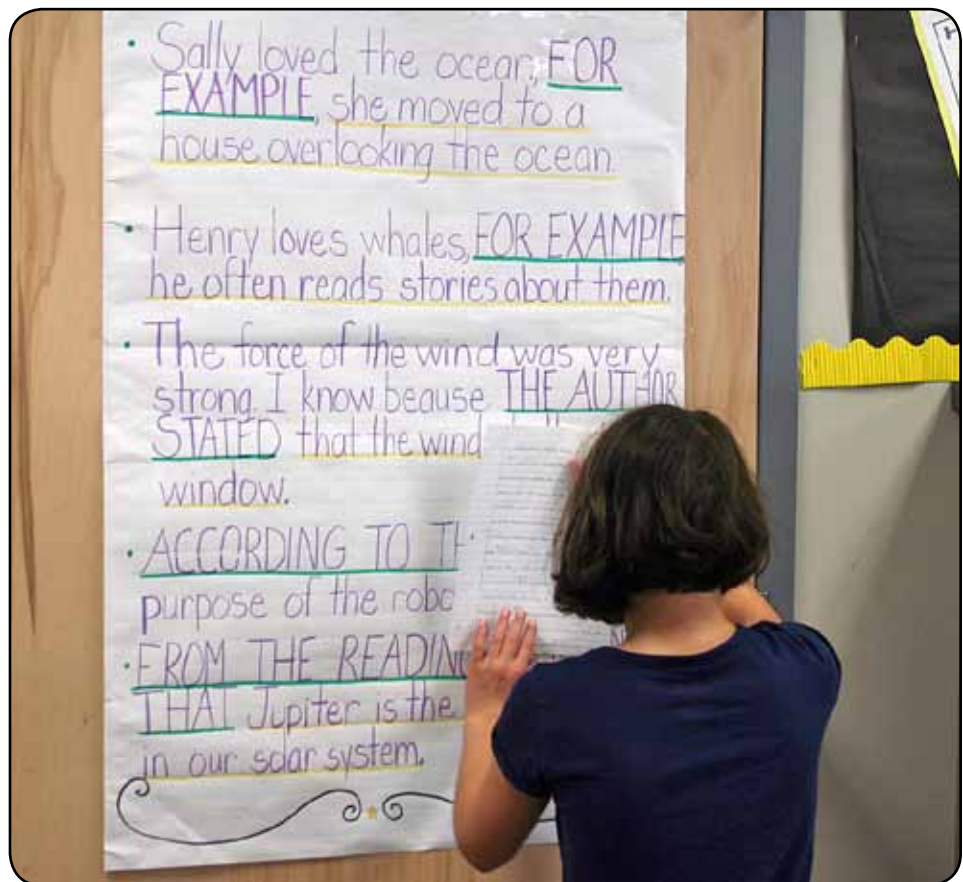 • Sally loved the ocean, FOR
EXAMPLE, she moved to a
house overlooking the ocean
• Henry loves whales, FOR EXAMPLE
he often reads stories about them.
• The force of the wind was very
strong. I know beause THE AUTHOR
STATED that the wind
window.
• ACCORDING TO
purpose of the
• FROM THE READING
THAT Jupiter is the
in our solar system.